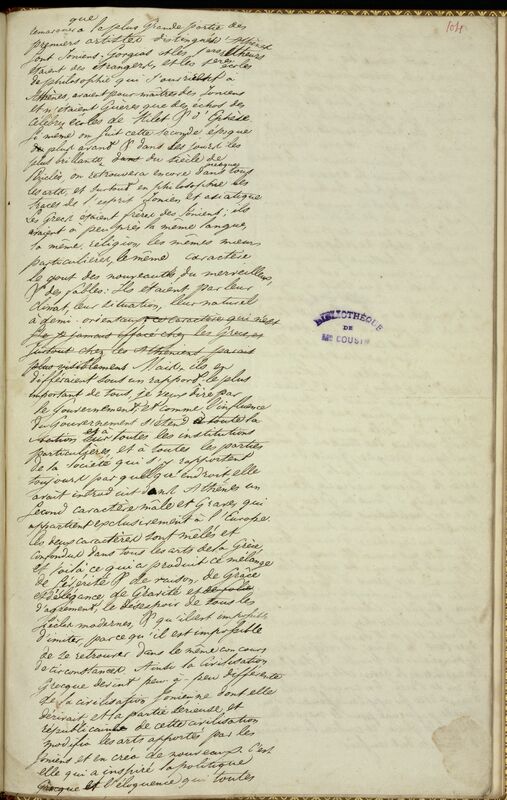 que
remarquer a la plus grande partie des
premiers artistes distingués d'Athènes
sont Ioniens; Gorgias et les professeurs
étaient des étrangers, et les écoles
de philosophie qui s'ouvrirent à
Athènes, avaient pour maîtres des Ioniens
et n'étaient guères que des échos des
célèbres écoles de Milet & d'Ephèse
Si même on suit cette seconde époque
plus avant & dans les jours les
plus brillants du siècle de
Périclès, on retrouvera encore dans presque tous
les arts, et surtout en philosophie les
traces de l'esprit Ionien et asiatique
Les Grecs étaient frères des Ioniens; ils
avaient à peu près la même langue,
la même religion, les mêmes mœurs
particulières, le même caractère
le gout des nouveautés du merveilleux,
& des fables: Ils étaient par leur
climat, leur situation, leur naturel
à demi orientaux ce caractère qui n'est
pas jamais effacé chez les Grecs, et
surtout chez les Athéniens parait
plus visiblement Mais, ils en
différaient sous un rapport le plus
important de tous, je veux dire par
le Gouvernement; et comme l'influence
du Gouvernement s'étend à toute la
Nation et sur toutes les institutions
particulières, et à toutes les parties
de la société qui s'y rapportent
toujours par quelqu'endroit elle
avait introduit dans Athènes un
second caractère mâle et grave qui
appartient exclusivement à l'Europe.
les deux caractères sont mêlés et
confondus dans tous les arts de la Grèce
et voilà ce qui a produit ce mélange
de légèreté & de raison, de Grâce
et d'élégance, de Gravité et de folie
d'agrément, le désespoir de tous les
siècles modernes, & qu'il est impossible
d'imiter, parce qu'il est impossible
de se retrouver dans le même concours
de circonstances. Ainsi la civilisation
Grecque devint peu à peu différente
de la civilisation Ionienne dont elle
dérivait, et la partie sérieuse, et
républicaine de cette civilisation
modifia les arts apportés par les
Ioniens et en créa de nouveaux. C'est
elle qui a inspiré la politique
Grecque et l'éloquence qui toutes
104
BIBLIOTHÈQUE
DE
Mr COUSIN